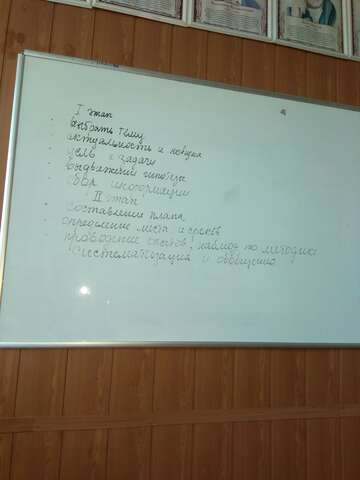 I этап
- выбрать тему
- актуальность и новизна
- цель и задачи
- выдвижение гипотезы
- сбор информации
II этап
- составление плана
- определение места и сроков
- проведение опытов, наблюд по методике
- систематизация и обобщение